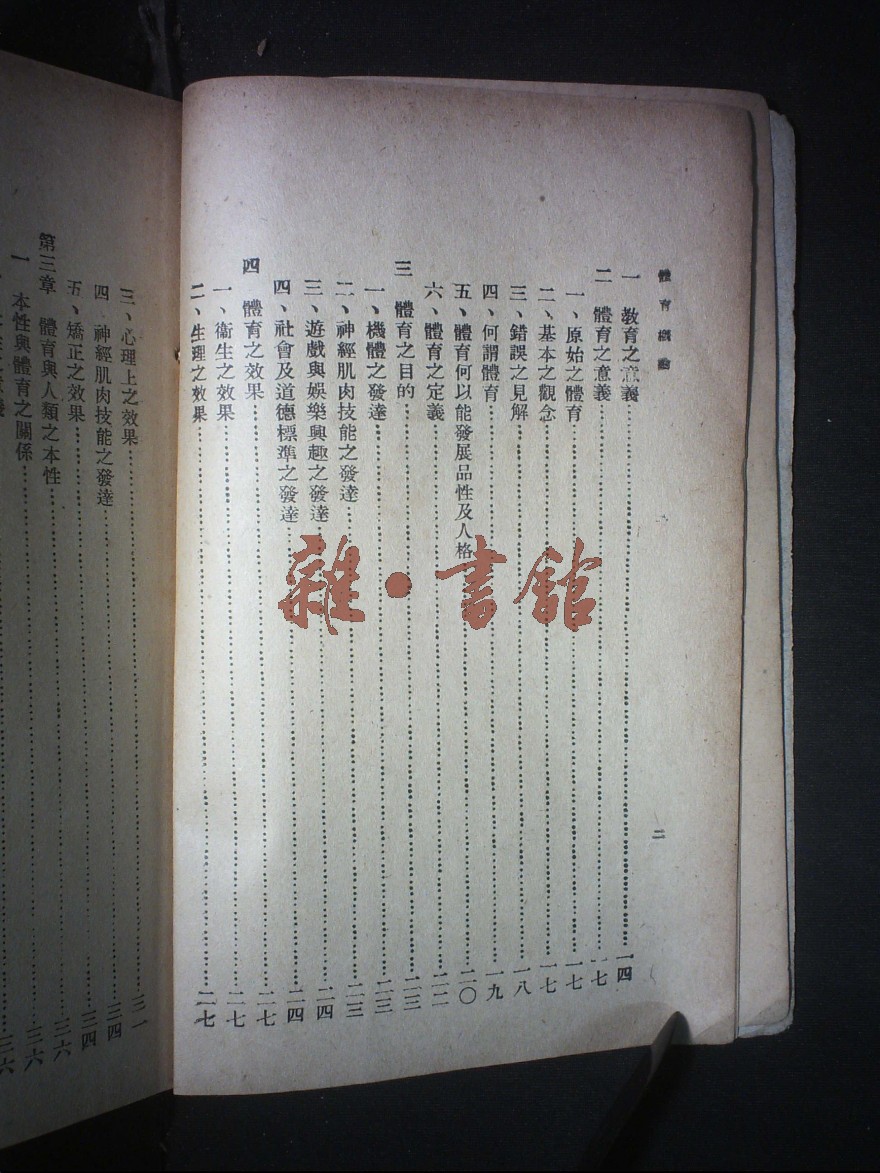 體育概論
一 教育之意義……一四
二 體育之意義……一七
一、原始之體育……一七
二、基本之觀念……一七
三、錯誤之見解……一八
四、何謂體育……一九
五、體育何以能發展品性及人格……二〇
六、體育之定義……二二
三 體育之目的……二三
一、機體之發達……二三
二、神經肌肉技能之發達……二三
三、遊戲與娛樂興趣之發達……二四
四、社會及道德標準之發達……二四
四 體育之效果……二七
一、衞生之效果……二七
二、生理之效果……二七
二
三、心理上之效果……三一
四 神經肌肉技能之發達……三四
五、矯正之效果……三四
第三章 體育與人類之本性……三六
一 本性與體育之關係……三六
三六
雜·書館